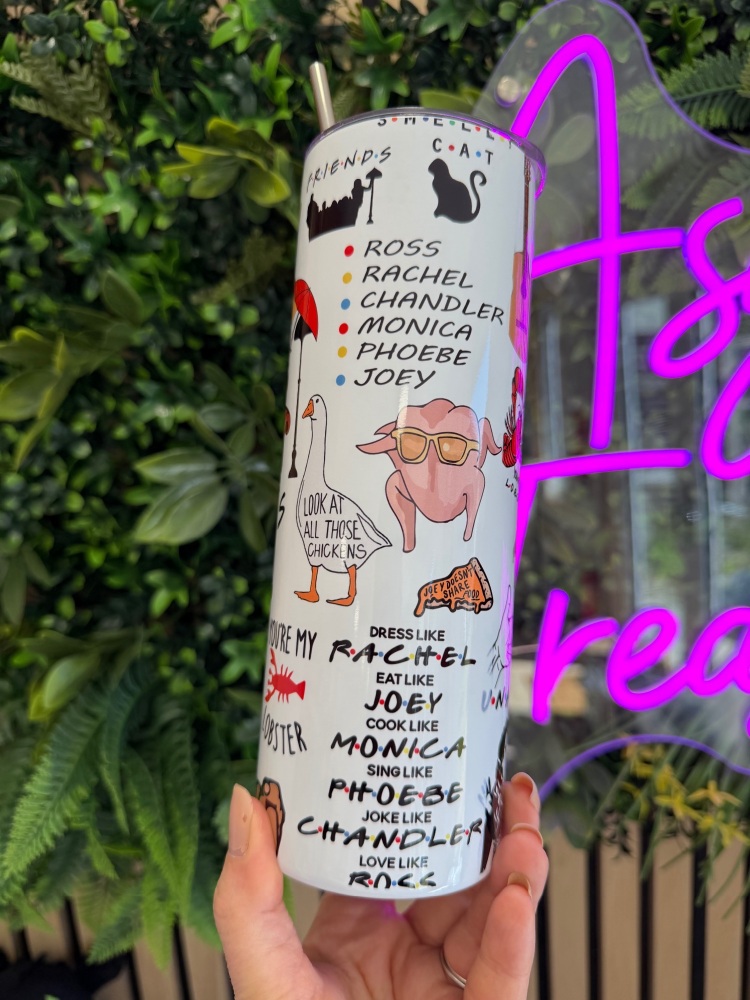 SMELLY
CAT
FRIENDS
ROSS
RACHEL
CHANDLER
MONICA
PHOEBE
JOEY
LOOK AT
ALL THOSE
CHICKENS
JOEY DOESN'T
SHARE
FOOD
YOU'RE MY
LOBSTER
DRESS LIKE
RACHEL
EAT LIKE
JOEY
COOK LIKE
MONICA
SING LIKE
PHOEBE
JOKE LIKE
CHANDLER
LOVE LIKE
ROSS